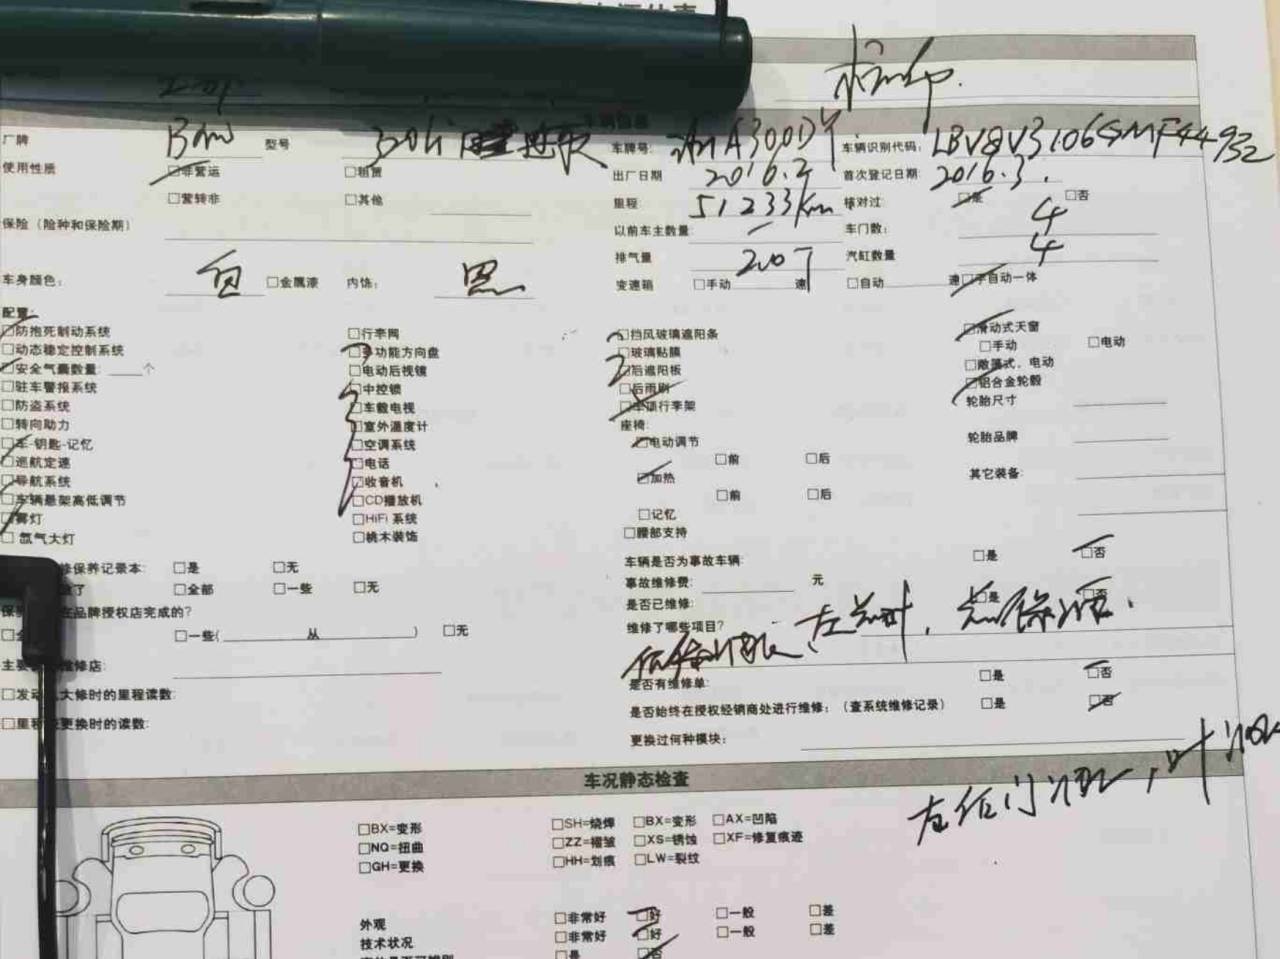 厂牌 BMW 型号 车牌号: A300D 车辆识别代码: LBV8V3106GMF44932
使用性质 □非营运 □租赁 出厂日期 2016.2 首次登记日期 2016.3.
□营转非 □其他 里程: 51233km 核对过: □是 □否
保险（险种和保险期） 以前车主数量 车门数: 4
排气量 200T 汽缸数量 4
车身颜色: 白 □金属漆 内饰: 黑 变速箱 □手动 速 □自动 速 □手自动一体
配置:
□防抱死制动系统 □行李网 □挡风玻璃遮阳条 □滑动式天窗
□动态稳定控制系统 □多功能方向盘 □玻璃贴膜 □手动 □电动
□安全气囊数量: 个 □电动后视镜 □后遮阳板 □敞篷式、电动
□驻车警报系统 □中控锁 □后雨刷 □铝合金轮毂
□防盗系统 □车载电视 □车顶行李架 轮胎尺寸
□转向助力 □室外温度计 座椅:
□车-钥匙-记忆 □空调系统 □电动调节 轮胎品牌
□巡航定速 □电话 □前 □后
□导航系统 □收音机 □加热 其它装备:
□车辆悬架高低调节 □CD播放机 □前 □后
□雾灯 □HiFi 系统 □记忆
□氙气大灯 □桃木装饰 □腰部支持
修保养记录本: □是 □无 车辆是否为事故车辆: □是 □否
□全部 □一些 □无 事故维修费: 元
在品牌授权店完成的? 是否已维修: □是 □否
□一些( 从 ) □无 维修了哪些项目?
主要 维修店: 是否有维修单: □是 □否
□发动 大修时的里程读数: 是否始终在授权经销商处进行维修:（查系统维修记录） □是 □否
□里程 更换时的读数: 更换过何种模块:
车况静态检查
□BX=变形 □SH=烧焊 □BX=变形 □AX=凹陷
□NQ=扭曲 □ZZ=褶皱 □XS=锈蚀 □XF=修复痕迹
□GH=更换 □HH=划痕 □LW=裂纹
外观 □非常好 □好 □一般 □差
技术状况 □非常好 □好 □一般 □差
□是 □否